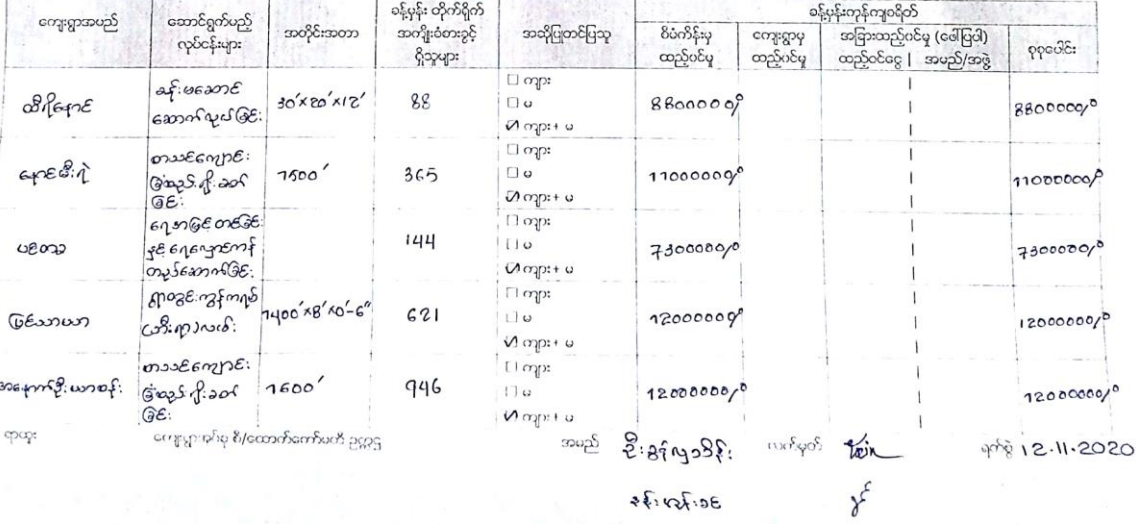 ကျေးရွာအမည် ဆောင်ရွက်မည့် လုပ်ငန်းများ အတိုင်းအတာ ခန့်မှန်း တိုက်ရိုက် အကျိုးခံစားခွင့် ရှိသူများ အဆိုပြုတင်ပြသူ ခန့်မှန်းကုန်ကျစရိတ်
စီမံကိန်းမှ ထည့်ဝင်မှု ကျေးရွာမှ ထည့်ဝင်မှု အခြားထည့်ဝင်မှု (ဖေါ်ပြပါ) ထည့်ဝင်ငွေ | အမည်/အဖွဲ့ စုစုပေါင်း
ထီရိနောင် ခန်းမဆောင် ဆောက်လုပ်ခြင်း 30'x20'x12' 88
☐ ကျား
☐ မ
☑ ကျား + မ
8800000/- 8800000/-
နောင်မီးရဲ စာသင်ကျောင်း ခြံစည်းရိုးခတ်ခြင်း 1500' 365
☐ ကျား
☐ မ
☑ ကျား + မ
11000000/- 11000000/-
144
☐ ကျား
☐ မ
☑ ကျား + မ
7300000/- 7300000/-
ဖြစ်သာယာ ရွာတွင်းကွန်ကရစ် 1400'x8'x0'-6" 621
☐ ကျား
☐ မ
☑ ကျား + မ
12000000/- 12000000/-
စာသင်ကျောင်း ခြံစည်းရိုးခတ်ခြင်း 1600' 946
☐ ကျား
☐ မ
☑ ကျား + မ
12000000/- 12000000/-
ရာထူး ကျေးရွာအုပ်စု စီ/ထောက်ကော်မတီ ဥက္ကဋ္ဌ အမည် လက်မှတ် ရက်စွဲ 12.11.2020